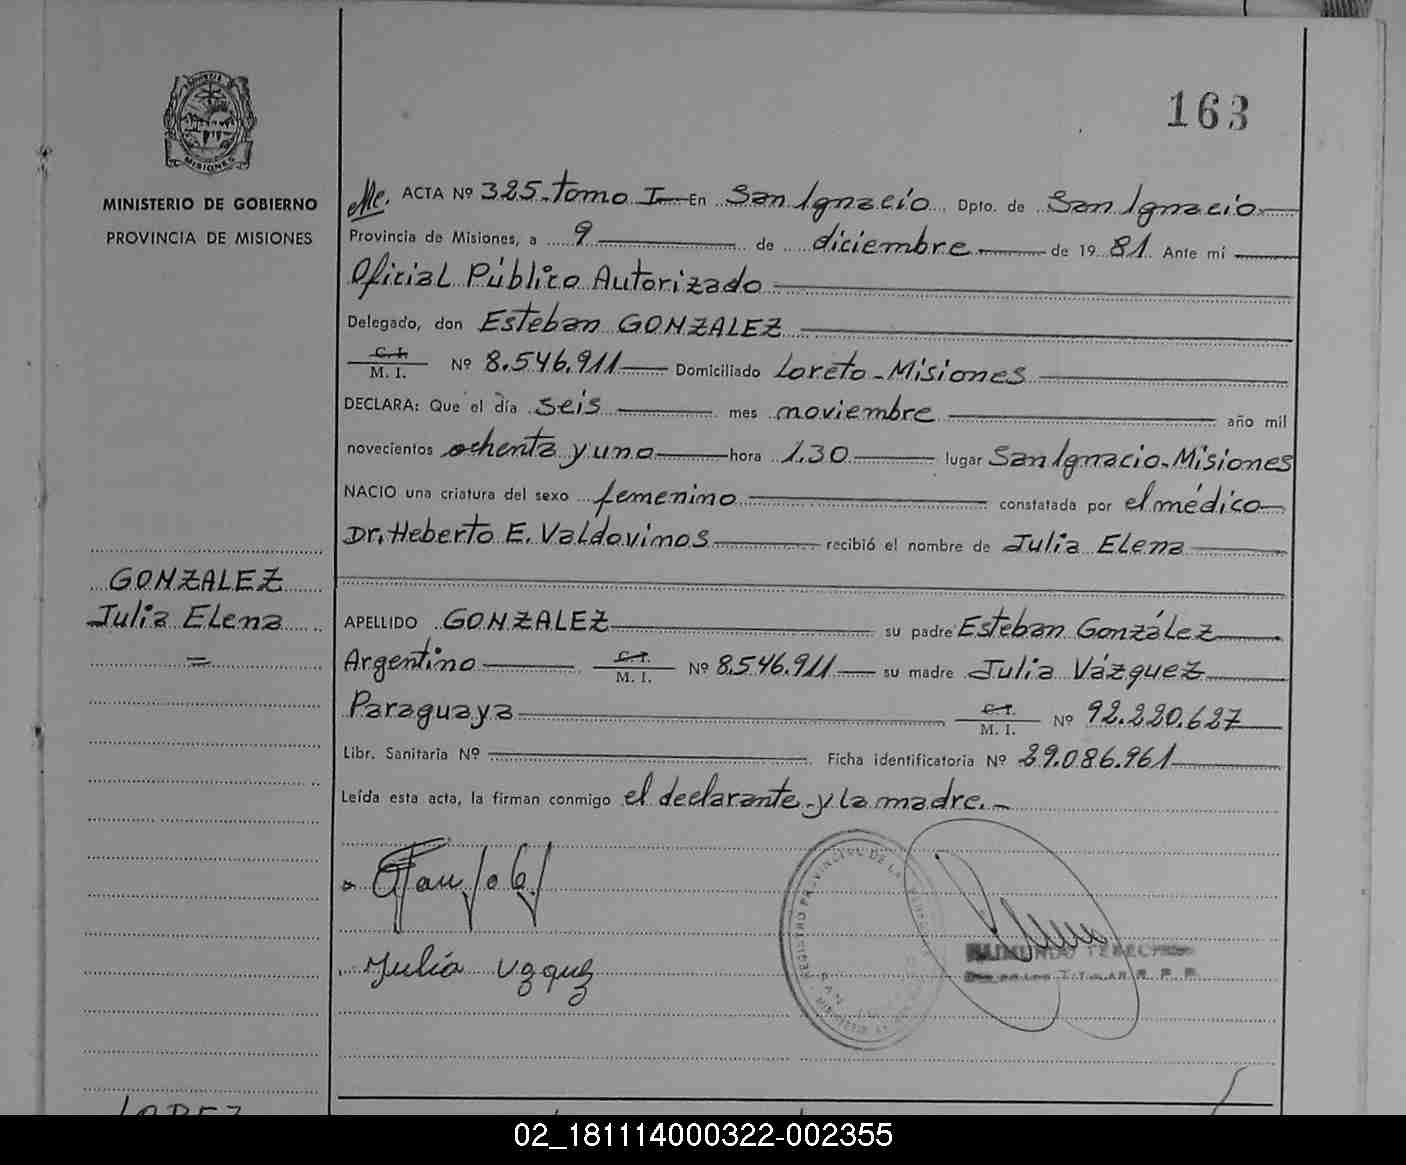 163
MISIONES
MINISTERIO DE GOBIERNO
PROVINCIA DE MISIONES
ACTA Nº 325-tomo I En San Ignacio Dpto. de San Ignacio
Provincia de Misiones, a 9 de diciembre de 19 81. Ante mi
Oficial Público Autorizado
Delegado, don Esteban GONZALEZ
C. I.
M. I. Nº 8.546.911 Domiciliado Loreto-Misiones
DECLARA: Que el día seis mes noviembre año mil
novecientos ochenta y uno hora 1.30 lugar San Ignacio-Misiones
NACIO una criatura del sexo femenino constatada por el médico
Dr. Heberto E. Valdovinos recibió el nombre de Julia Elena
GONZALEZ
Julia Elena
APELLIDO GONZALEZ su padre Esteban González
Argentino C. I. M. I. Nº 8.546.911 su madre Julia Vázquez
Paraguaya C. I. M. I. Nº 92.220.627
Libr. Sanitaria Nº Ficha identificatoria Nº 29.086.961
Leída esta acta, la firman conmigo el declarante y la madre.-
REGISTRO PROVINCIAL DE LAS
Julia
RAIMUNDO
LOPEZ
02_181114000322-002355